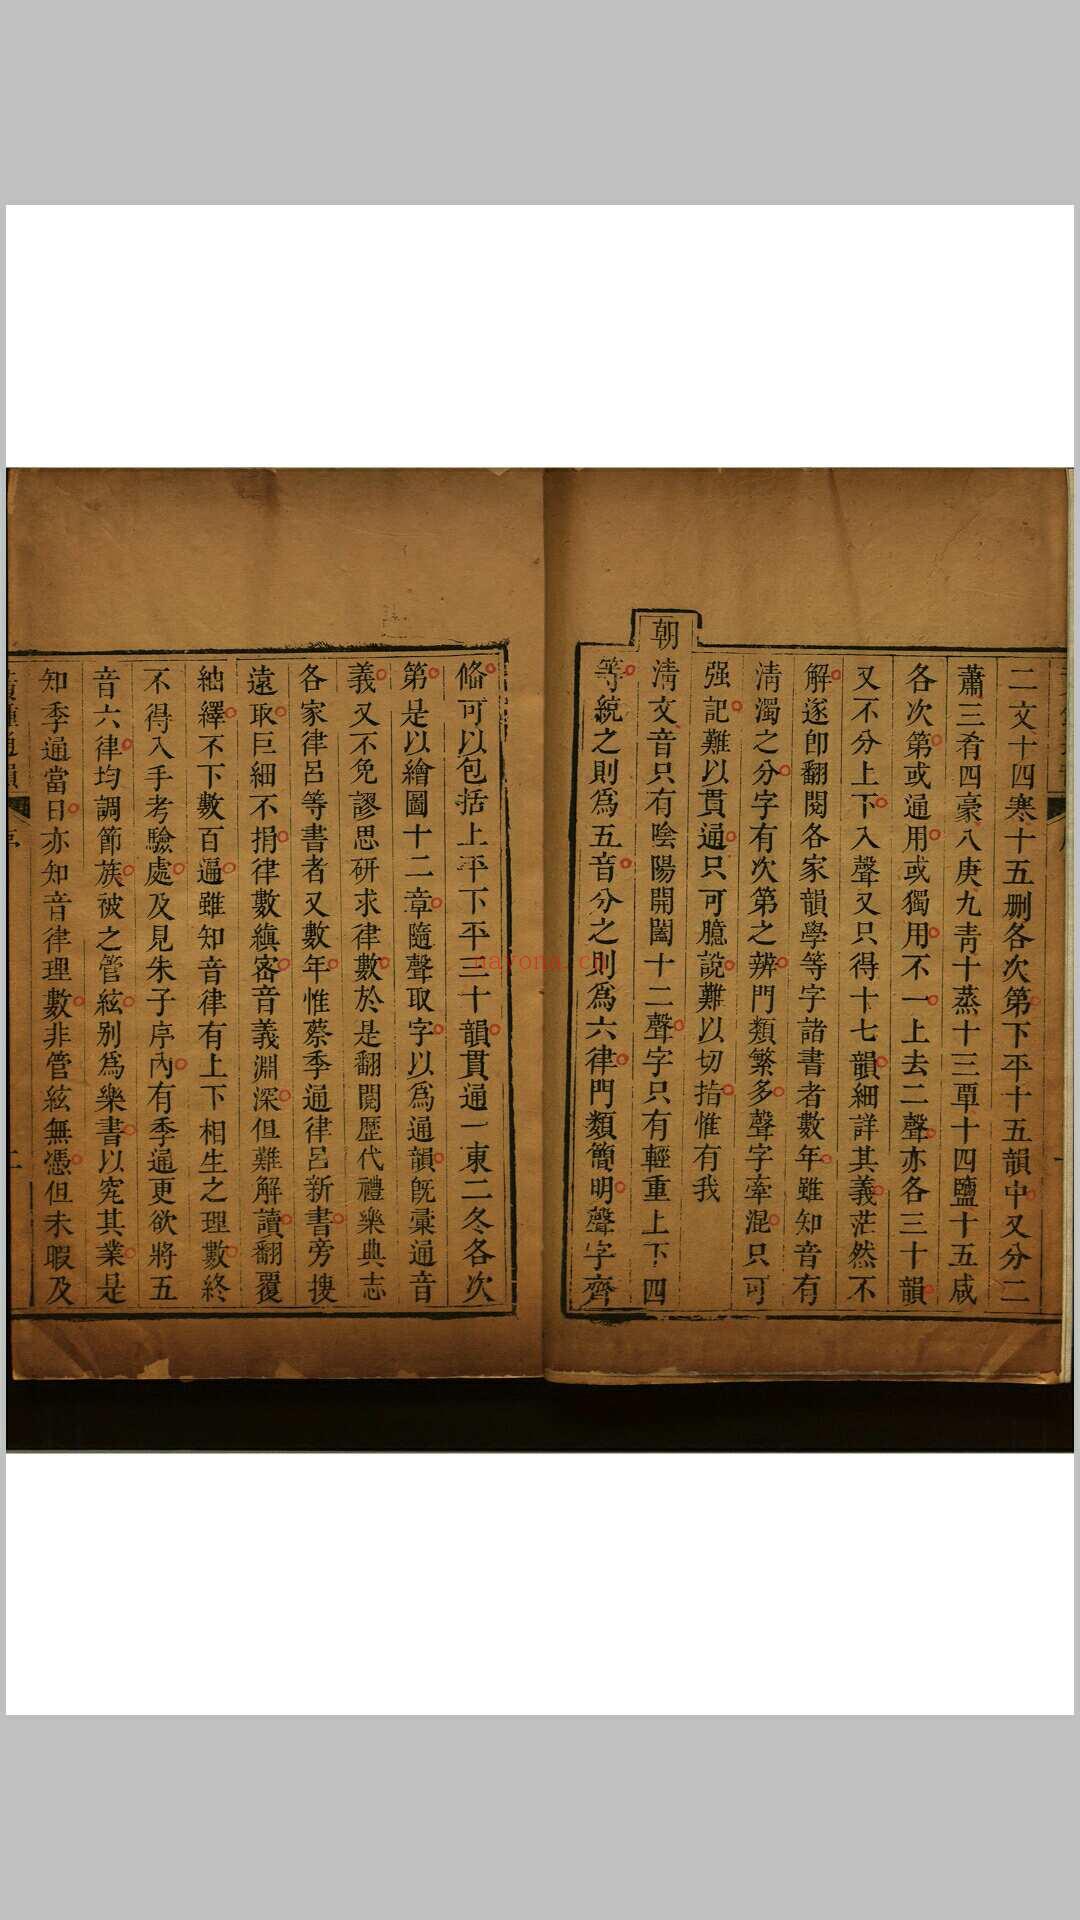 二文十四寒十五删各次第下平十五韻中又分二
蕭三肴四豪八庚九靑十蒸十三覃十四鹽十五咸
各次第或通用或獨用不一上去二聲亦各三十韻
又不分上下入聲又只得十七韻細詳其義茫然不
解逐卽翻閱各家韻學等字諸書者數年雖知音有
淸濁之分字有次第之辨門類繁多聲字牽混只可
强記難以貫通只可臆說難以切指惟有我
朝淸文音只有陰陽開闔十二聲字只有輕重上下四
等統之則爲五音分之則爲六律門類簡明聲字齊
偹可以包括上平下平三十韻貫通一東二冬各次
第是以繪圖十二章隨聲取字以爲通韻旣彙通音
義又不免謬思研求律數於是翻閱歷代禮樂典志
各家律呂等書者又數年惟蔡季通律呂新書旁搜
遠取巨細不捐律數縝密音義淵深但難解讀翻覆
紬繹不下數百遍雖知音律有上下相生之理數終
不得入手考驗處及見朱子序內有季通更欲將五
音六律均調節族被之管絃别爲樂書以究其業是
知季通當日亦知音律理數非管絃無憑但未暇及
黃鍾通韻 序 二
nayona.cn